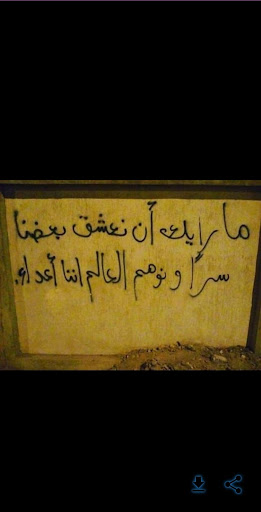 ما رايك أن نعشق بعضنا
سرًا و نوهم العالم اننا أعداء.